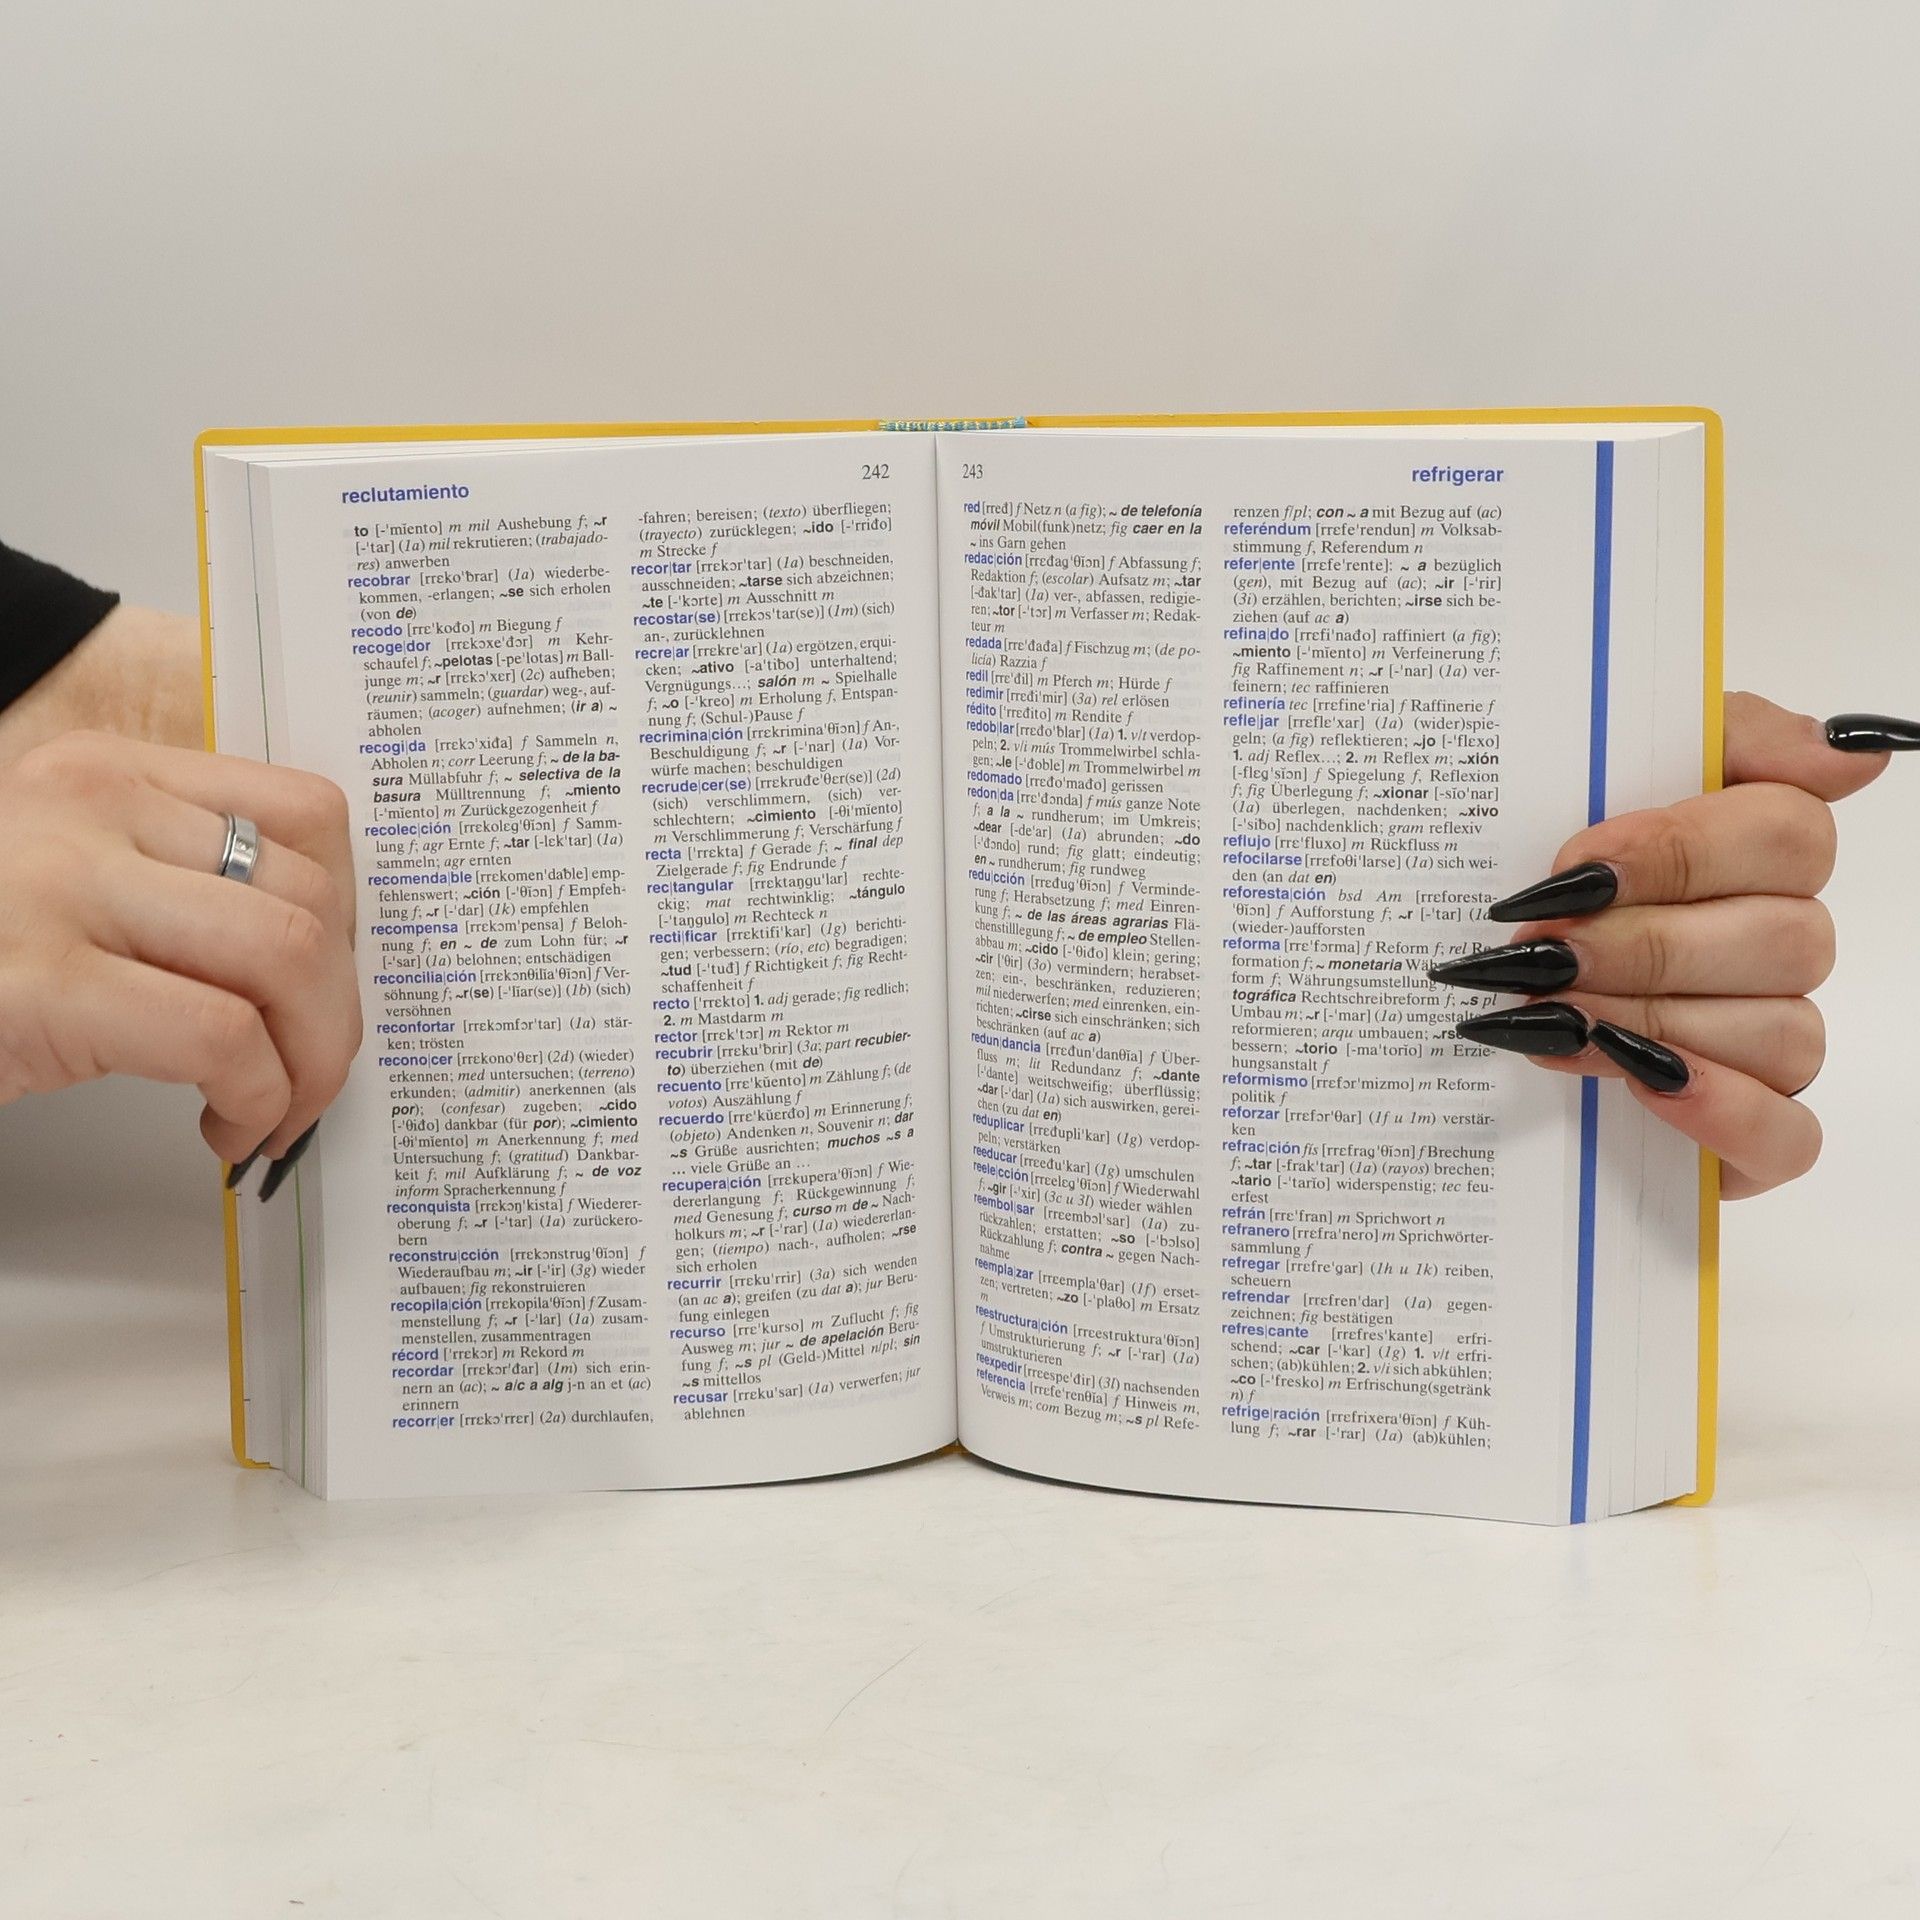 reclutamiento
242
to [-ˈmi̯ento] m mil Aushebung f; ~r
[-ˈtar] (1a) mil rekrutieren; (trabajado-
res) anwerben
recobrar [rrɛkoˈƀrar] (1a) wiederbe-
kommen, -erlangen; ~se sich erholen
(von de)
recodo [rrɛˈkođo] m Biegung f
recoge|dor [rrɛkɔxeˈđɔr] m Kehr-
schaufel f; ~pelotas [-peˈlotas] m Ball-
junge m; ~r [rrɛkɔˈxɛr] (2c) aufheben;
(reunir) sammeln; (guardar) weg-, auf-
räumen; (acoger) aufnehmen; (ir a) ~
abholen
recogi|da [rrɛkɔˈxiđa] f Sammeln n,
Abholen n; corr Leerung f; ~ de la ba-
sura Müllabfuhr f; ~ selectiva de la
basura Mülltrennung f; ~miento
[-ˈmi̯ento] m Zurückgezogenheit f
recolec|ción [rrɛkolɛgˈθi̯ɔn] f Samm-
lung f; agr Ernte f; ~tar [-lɛkˈtar] (1a)
sammeln; agr ernten
recomenda|ble [rrɛkomenˈdaƀle] emp-
fehlenswert; ~ción [-ˈθi̯ɔn] f Empfeh-
lung f; ~r [-ˈdar] (1k) empfehlen
recompensa [rrɛkɔmˈpensa] f Beloh-
nung f; en ~ de zum Lohn für; ~r
[-ˈsar] (1a) belohnen; entschädigen
reconcilia|ción [rrɛkɔnθili̯aˈθi̯ɔn] f Ver-
söhnung f; ~r(se) [-ˈli̯ar(se)] (1b) (sich)
versöhnen
reconfortar [rrɛkɔmfɔrˈtar] (1a) stär-
ken; trösten
recono|cer [rrɛkonoˈθɛr] (2d) (wieder)
erkennen; med untersuchen; (terreno)
erkunden; (admitir) anerkennen (als
por); (confesar) zugeben; ~cido
[-ˈθiđo] dankbar (für por); ~cimiento
[-θiˈmi̯ento] m Anerkennung f; med
Untersuchung f; (gratitud) Dankbar-
keit f; mil Aufklärung f; ~ de voz
inform Spracherkennung f
reconquista [rrɛkɔŋˈkista] f Wiederer-
oberung f; ~r [-ˈtar] (1a) zurückero-
bern
reconstru|cción [rrɛkɔnstrugˈθi̯ɔn] f
Wiederaufbau m; ~ir [-ˈir] (3g) wieder
aufbauen; fig rekonstruieren
recopila|ción [rrɛkopilaˈθi̯ɔn] f Zusam-
menstellung f; ~r [-ˈlar] (1a) zusam-
menstellen, zusammentragen
récord [ˈrrɛkɔr] m Rekord m
recordar [rrɛkɔrˈđar] (1m) sich erin-
nern an (ac); ~ a/c a alg j-n an et (ac)
erinnern
recorr|er [rrɛkɔˈrrɛr] (2a) durchlaufen,
-fahren; bereisen; (texto) überfliegen;
(trayecto) zurücklegen; ~ido [-ˈrriđo]
m Strecke f
recor|tar [rrɛkɔrˈtar] (1a) beschneiden,
ausschneiden; ~tarse sich abzeichnen;
~te [-ˈkɔrte] m Ausschnitt m
recostar(se) [rrɛkɔsˈtar(se)] (1m) (sich)
an-, zurücklehnen
recre|ar [rrɛkreˈar] (1a) ergötzen, erqui-
cken; ~ativo [-aˈtiƀo] unterhaltend;
Vergnügungs...; salón m ~ Spielhalle
f; ~o [-ˈkreo] m Erholung f, Entspan-
nung f; (Schul-)Pause f
recrimina|ción [rrɛkriminaˈθi̯ɔn] f An-,
Beschuldigung f; ~r [-ˈnar] (1a) Vor-
würfe machen; beschuldigen
recrude|cer(se) [rrɛkruđeˈθɛr(se)] (2d)
(sich) verschlimmern, (sich) ver-
schlechtern; ~cimiento [-θiˈmi̯ento]
m Verschlimmerung f; Verschärfung f
recta [ˈrrɛkta] f Gerade f; ~ final dep
Zielgerade f; fig Endrunde f
rec|tangular [rrɛktaŋguˈlar] rechte-
ckig; mat rechtwinklig; ~tángulo
[-ˈtaŋgulo] m Rechteck n
recti|ficar [rrɛktifiˈkar] (1g) berichti-
gen; verbessern; (río, etc) begradigen;
~tud [-ˈtuđ] f Richtigkeit f; fig Recht-
schaffenheit f
recto [ˈrrɛkto] 1. adj gerade; fig redlich;
2. m Mastdarm m
rector [rrɛkˈtɔr] m Rektor m
recubrir [rrɛkuˈƀrir] (3a; part recubier-
to) überziehen (mit de)
recuento [rrɛˈku̯ento] m Zählung f; (de
votos) Auszählung f
recuerdo [rrɛˈku̯ɛrđo] m Erinnerung f;
(objeto) Andenken n, Souvenir n; dar
~s Grüße ausrichten; muchos ~s a
... viele Grüße an ...
recupera|ción [rrɛkuperaˈθi̯ɔn] f Wie-
dererlangung f; Rückgewinnung f;
med Genesung f; curso m de ~ Nach-
holkurs m; ~r [-ˈrar] (1a) wiedererlan-
gen; (tiempo) nach-, aufholen; ~rse
sich erholen
recurrir [rrɛkuˈrrir] (3a) sich wenden
(an ac a); greifen (zu dat a); jur Beru-
fung einlegen
recurso [rrɛˈkurso] m Zuflucht f; fig
Ausweg m; jur ~ de apelación Beru-
fung f; ~s pl (Geld-)Mittel n/pl; sin
~s mittellos
recusar [rrɛkuˈsar] (1a) verwerfen; jur
ablehnen
243
refrigerar
red [rređ] f Netz n (a fig); ~ de telefonía
móvil Mobil(funk)netz; fig caer en la
~ ins Garn gehen
redac|ción [rrɛđagˈθi̯ɔn] f Abfassung f;
Redaktion f; (escolar) Aufsatz m; ~tar
[-đakˈtar] (1a) ver-, abfassen, redigie-
ren; ~tor [-ˈtɔr] m Verfasser m; Redak-
teur m
redada [rrɛˈđađa] f Fischzug m; (de po-
licía) Razzia f
redil [rrɛˈđil] m Pferch m; Hürde f
redimir [rrɛđiˈmir] (3a) rel erlösen
rédito [ˈrrɛđito] m Rendite f
redob|lar [rrɛđoˈƀlar] (1a) 1. v/t verdop-
peln; 2. v/i mús Trommelwirbel schla-
gen; ~le [-ˈđoƀle] m Trommelwirbel m
redomado [rrɛđoˈmađo] gerissen
redon|da [rrɛˈđɔnda] f mús ganze Note
f; a la ~ rundherum; im Umkreis;
~dear [-deˈar] (1a) abrunden; ~do
[-ˈđɔndo] rund; fig glatt; eindeutig;
en ~ rundherum; fig rundweg
redu|cción [rrɛđugˈθi̯ɔn] f Verminde-
rung f; Herabsetzung f; med Einren-
kung f; ~ de las áreas agrarias Flä-
chenstilllegung f; ~ de empleo Stellen-
abbau m; ~cido [-ˈθiđo] klein; gering;
~cir [-ˈθir] (3o) vermindern; herabset-
zen; ein-, beschränken, reduzieren;
mil niederwerfen; med einrenken, ein-
richten; ~cirse sich einschränken; sich
beschränken (auf ac a)
redun|dancia [rrɛđunˈdanθi̯a] f Über-
fluss m; lit Redundanz f; ~dante
[-ˈdante] weitschweifig; überflüssig;
~dar [-ˈdar] (1a) sich auswirken, gerei-
chen (zu dat en)
reduplicar [rrɛđupliˈkar] (1g) verdop-
peln; verstärken
reeducar [rrɛeđuˈkar] (1g) umschulen
reele|cción [rrɛelɛgˈθi̯ɔn] f Wiederwahl
f; ~gir [-ˈxir] (3c u 3l) wieder wählen
reembol|sar [rrɛembɔlˈsar] (1a) zu-
rückzahlen; erstatten; ~so [-ˈbɔlso]
Rückzahlung f; contra ~ gegen Nach-
nahme
reempla|zar [rrɛemplaˈθar] (1f) erset-
zen; vertreten; ~zo [-ˈplaθo] m Ersatz
m
reestructura|ción [rrɛestrukturaˈθi̯ɔn]
f Umstrukturierung f; ~r [-ˈrar] (1a)
umstrukturieren
reexpedir [rrɛespeˈđir] (3l) nachsenden
referencia [rrɛfeˈrenθi̯a] f Hinweis m,
Verweis m; com Bezug m; ~s pl Refe-
renzen f/pl; con ~ a mit Bezug auf (ac)
referéndum [rrɛfeˈrendun] m Volksab-
stimmung f, Referendum n
refer|ente [rrɛfeˈrente]: ~ a bezüglich
(gen), mit Bezug auf (ac); ~ir [-ˈrir]
(3i) erzählen, berichten; ~irse sich be-
ziehen (auf ac a)
refina|do [rrɛfiˈnađo] raffiniert (a fig);
~miento [-ˈmi̯ento] m Verfeinerung f;
fig Raffinement n; ~r [-ˈnar] (1a) ver-
feinern; tec raffinieren
refinería tec [rrɛfineˈria] f Raffinerie f
refle|jar [rrɛfleˈxar] (1a) (wider)spie-
geln; (a fig) reflektieren; ~jo [-ˈflɛxo]
1. adj Reflex...; 2. m Reflex m; ~xión
[-flɛgˈsi̯ɔn] f Spiegelung f, Reflexion
f; fig Überlegung f; ~xionar [-si̯oˈnar]
(1a) überlegen, nachdenken; ~xivo
[-ˈsiƀo] nachdenklich; gram reflexiv
reflujo [rrɛˈfluxo] m Rückfluss m
refocilarse [rrɛfoθiˈlarse] (1a) sich wei-
den (an dat en)
reforesta|ción bsd Am [rrɛforesta-
ˈθi̯ɔn] f Aufforstung f; ~r [-ˈtar]
(wieder-)aufforsten
reforma [rrɛˈfɔrma] f Reform f; rel
formation f; ~ monetaria
form f; Währungsumstellung
tográfica Rechtschreibreform f; ~s pl
Umbau m; ~r [-ˈmar] (1a)
reformieren; arqu umbauen;
bessern; ~torio [-maˈtori̯o] m Erzie-
hungsanstalt f
reformismo [rrɛfɔrˈmizmo] m Reform-
politik f
reforzar [rrɛfɔrˈθar] (1f u 1m) verstär-
ken
refrac|ción fís [rrɛfragˈθi̯ɔn] f Brechung
f; ~tar [-frakˈtar] (1a) (rayos) brechen;
~tario [-ˈtari̯o] widerspenstig; tec feu-
erfest
refrán [rrɛˈfran] m Sprichwort n
refranero [rrɛfraˈnero] m Sprichwörter-
sammlung f
refregar [rrɛfreˈgar] (1h u 1k) reiben,
scheuern
refrendar [rrɛfrenˈdar] (1a) gegen-
zeichnen; fig bestätigen
refres|cante [rrɛfresˈkante] erfri-
schend; ~car [-ˈkar] (1g) 1. v/t erfri-
schen; (ab)kühlen; 2. v/i sich abkühlen;
~co [-ˈfresko] m Erfrischung(sgetränk
n) f
refrige|ración [rrɛfrixeraˈθi̯ɔn] f Küh-
lung f; ~rar [-ˈrar] (1a) (ab)kühlen;